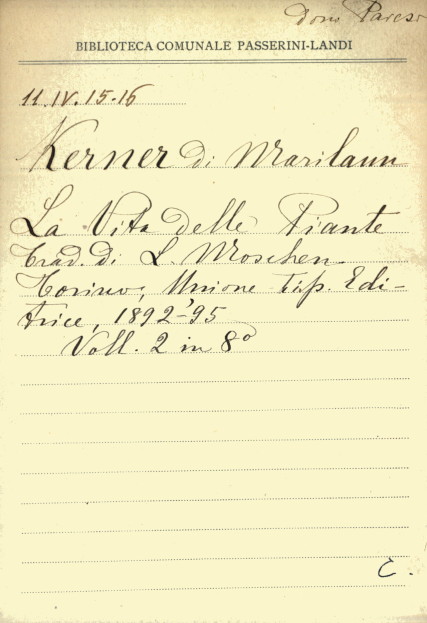 Dono Pareso
BIBLIOTECA COMUNALE PASSERINI-LANDI
11.IV.15-16
Kerner di Marilaun
La Vita delle Piante
Trad. di L. Moschen
Torino, Unione Tip. Edi-
trice, 1892-'95
Voll. 2 in 8º
C.